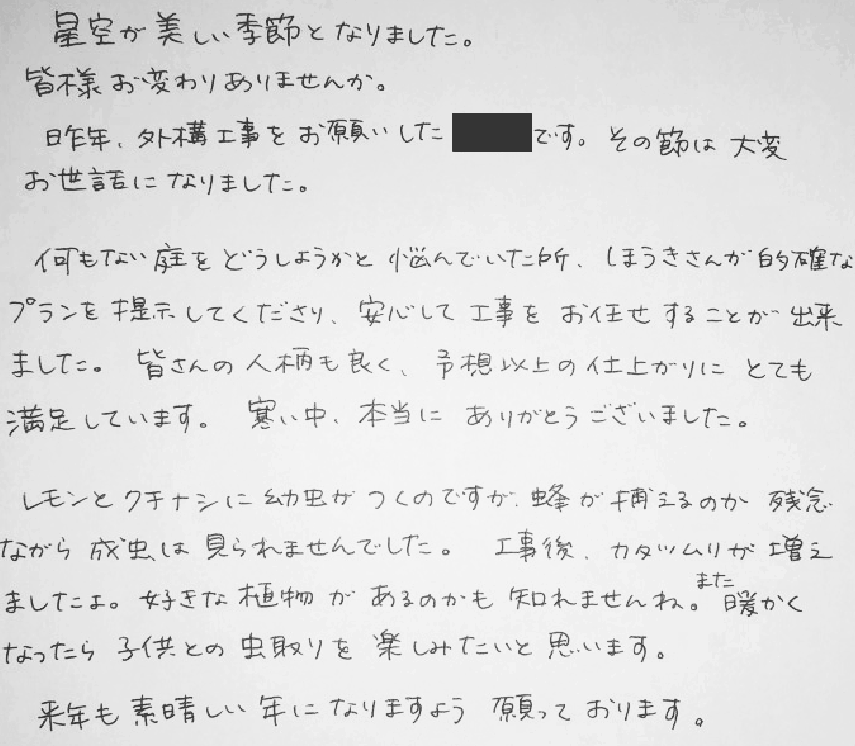 星空が美しい季節となりました。
皆様お変わりありませんか。
昨年、外構工事をお願いしたです。その節は大変
お世話になりました。
何もない庭をどうしようかと悩んでいた所、ほうきさんが的確な
プランを提示してくださり、安心して工事をお任せすることが出来
ました。皆さんの人柄も良く、予想以上の仕上がりにとても
満足しています。寒い中、本当にありがとうございました。
レモンとクチナシに幼虫がつくのですが、蜂が捕えるのか残念
ながら成虫は見られませんでした。工事後、カタツムリが増え
ましたよ。好きな植物があるのかも知れませんね。また暖かく
なったら子供との虫取りを楽しみたいと思います。
来年も素晴しい年になりますよう願っております。